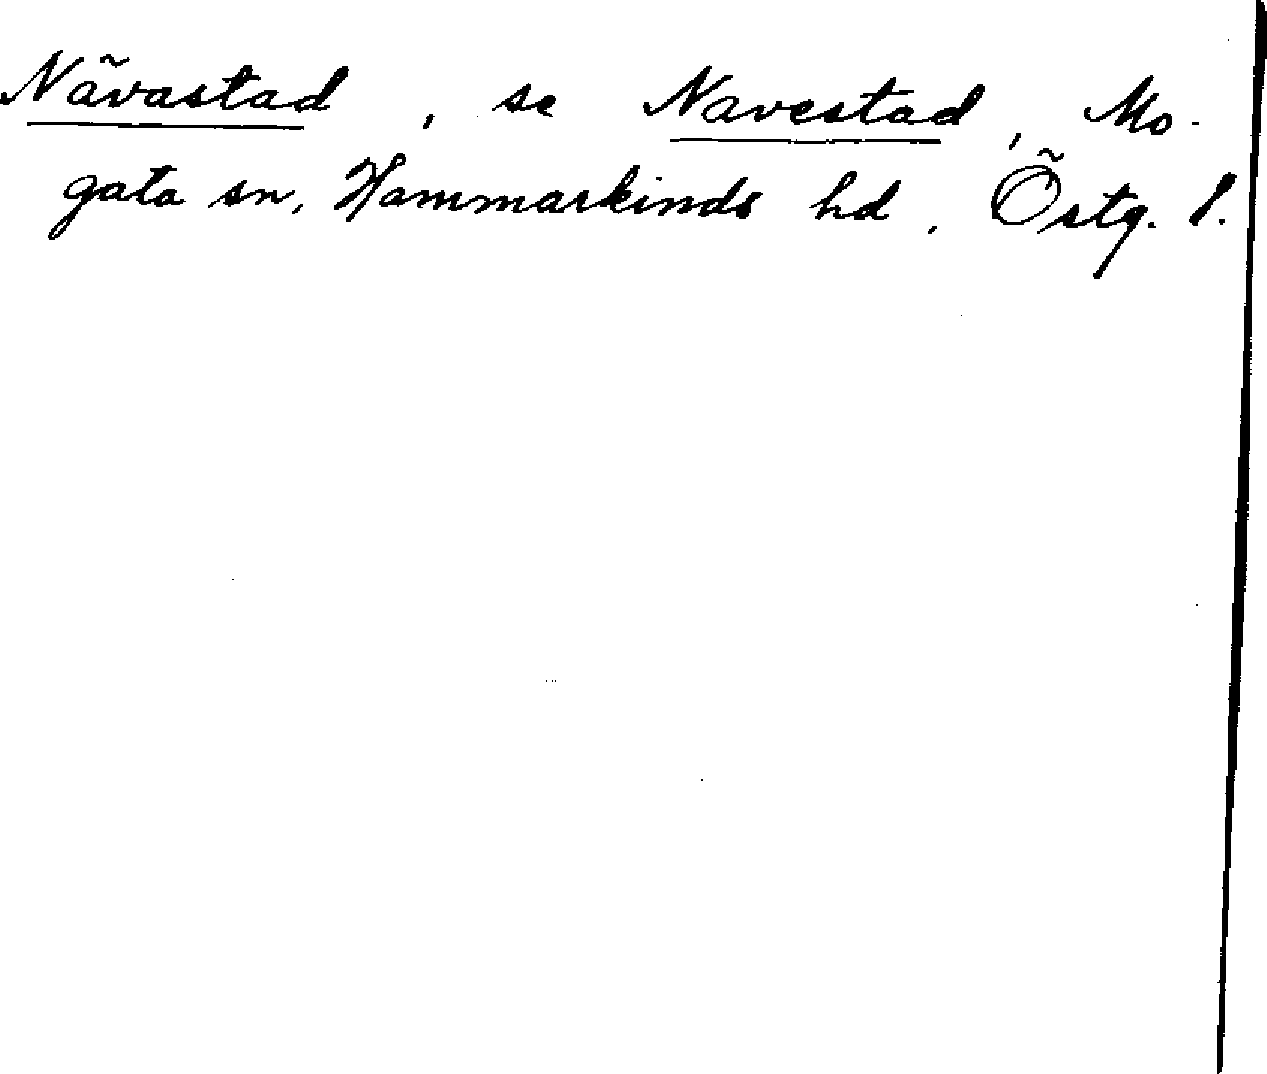 Nävastad, se Navestad, Mo-
gata sn, Hammarkinds hd, Östg. l.